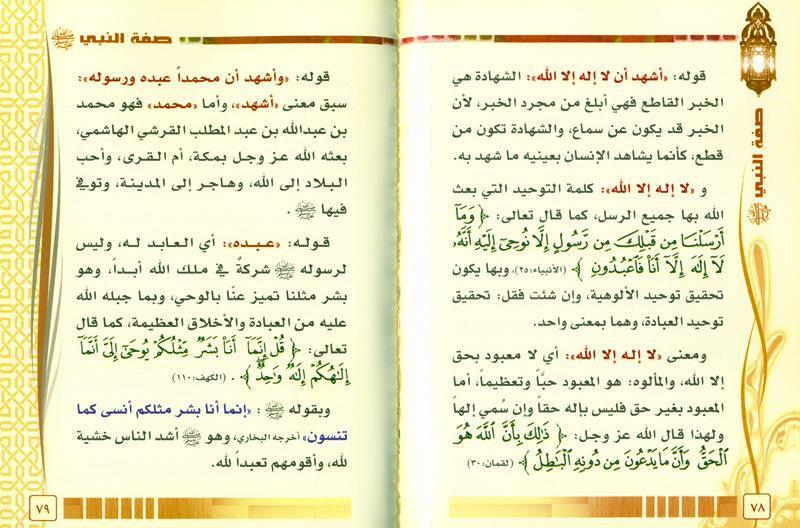 صفة النبي ﷺ
قوله: «أشهد أن لا إله إلا الله»: الشهادة هي
الخبر القاطع فهي أبلغ من مجرد الخبر، لأن
الخبر قد يكون عن سماع، والشهادة تكون من
قطع، كأنما يشاهد الإنسان بعينيه ما شهد به.
و «لا إله إلا الله»: كلمة التوحيد التي بعث
الله بها جميع الرسل، كما قال تعالى: ﴿وَمَآ
أَرْسَلْنَا مِن قَبْلِكَ مِن رَّسُولٍ إِلَّا نُوحِىٓ إِلَيْهِ أَنَّهُۥ
لَآ إِلَٰهَ إِلَّآ أَنَا۠ فَٱعْبُدُونِ﴾ (الأنبياء:٢٥)، وبها يكون
تحقيق توحيد الألوهية، وإن شئت فقل: تحقيق
توحيد العبادة، وهما بمعنى واحد.
ومعنى «لا إله إلا الله»: أي لا معبود بحق
إلا الله، والمألوه: هو المعبود حبًّا وتعظيماً، أما
المعبود بغير حق فليس بإله حقاً وإن سُمي إلهاً
ولهذا قال الله عز وجل: ﴿ذَٰلِكَ بِأَنَّ ٱللَّهَ هُوَ
ٱلْحَقُّ وَأَنَّ مَا يَدْعُونَ مِن دُونِهِ ٱلْبَٰطِلُ﴾ (لقمان:٣٠)
٧٨
صفة النبي ﷺ
قوله: «وأشهد أن محمداً عبده ورسوله»:
سبق معنى «أشهد»، وأما «محمد» فهو محمد
بن عبدالله بن عبد المطلب القرشي الهاشمي،
بعثه الله عز وجل بمكة، أم القرى، وأحب
البلاد إلى الله، وهاجر إلى المدينة، وتوفي
فيها ﷺ .
قوله: «عبده»: أي العابد له، وليس
لرسوله ﷺ شركةٌ في ملك الله أبداً، وهو
بشر مثلنا تميز عنّا بالوحي، وبما جبله الله
عليه من العبادة والأخلاق العظيمة، كما قال
تعالى: ﴿قُلْ إِنَّمَآ أَنَا۠ بَشَرٌ مِّثْلُكُمْ يُوحَىٰٓ إِلَىَّ أَنَّمَآ
إِلَٰهُكُمْ إِلَٰهٌ وَٰحِدٌ﴾ . (الكهف:١١٠)
وبقوله ﷺ : «إنما أنا بشر مثلكم أنسى كما
تنسون» أخرجه البخاري، وهو ﷺ أشد الناس خشية
لله، وأقومهم تعبداً لله.
٧٩